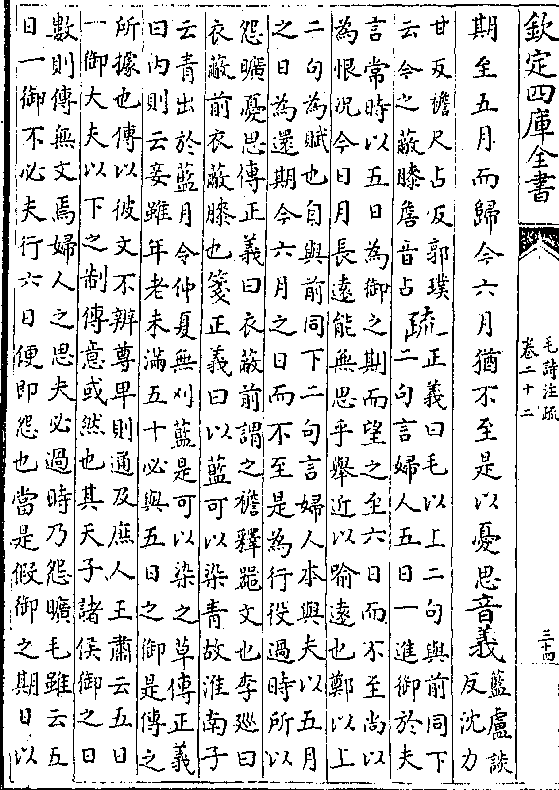 欽定四庫全書
毛詩注疏
卷二十二
三十四
期至五月而歸今六月猶不至是以憂思音義
藍盧談
反沈力
甘反襜尺占反郭璞
云今之蔽膝詹音占
疏
正義曰毛以上二句與前同下
二句言婦人五日一進御於夫
言常時以五日為御之期而望之至六日而不至尚以
為恨況今日月長遠能無思乎舉近以喻遠也鄭以上
二句為賦也自與前同下二句言婦人本與夫以五月
之日為還期今六月之日而不至是為行役過時所以
怨曠憂思傳正義曰衣蔽前謂之襜釋器文也李廵曰
衣蔽前衣蔽膝也箋正義曰以藍可以染青故淮南子
云青出於藍月令仲夏無刈藍是可以染之草傳正義
曰内則云妾雖年老未滿五十必與五日之御是傳之
所據也傳以彼文不辨尊卑則通及庶人王肅云五日
一御大夫以下之制傳意或然也其天子諸侯御之日
數則傳無文焉婦人之思夫必過時乃怨曠毛雖云五
日一御不必夫行六日便即怨也當是假御之期日以